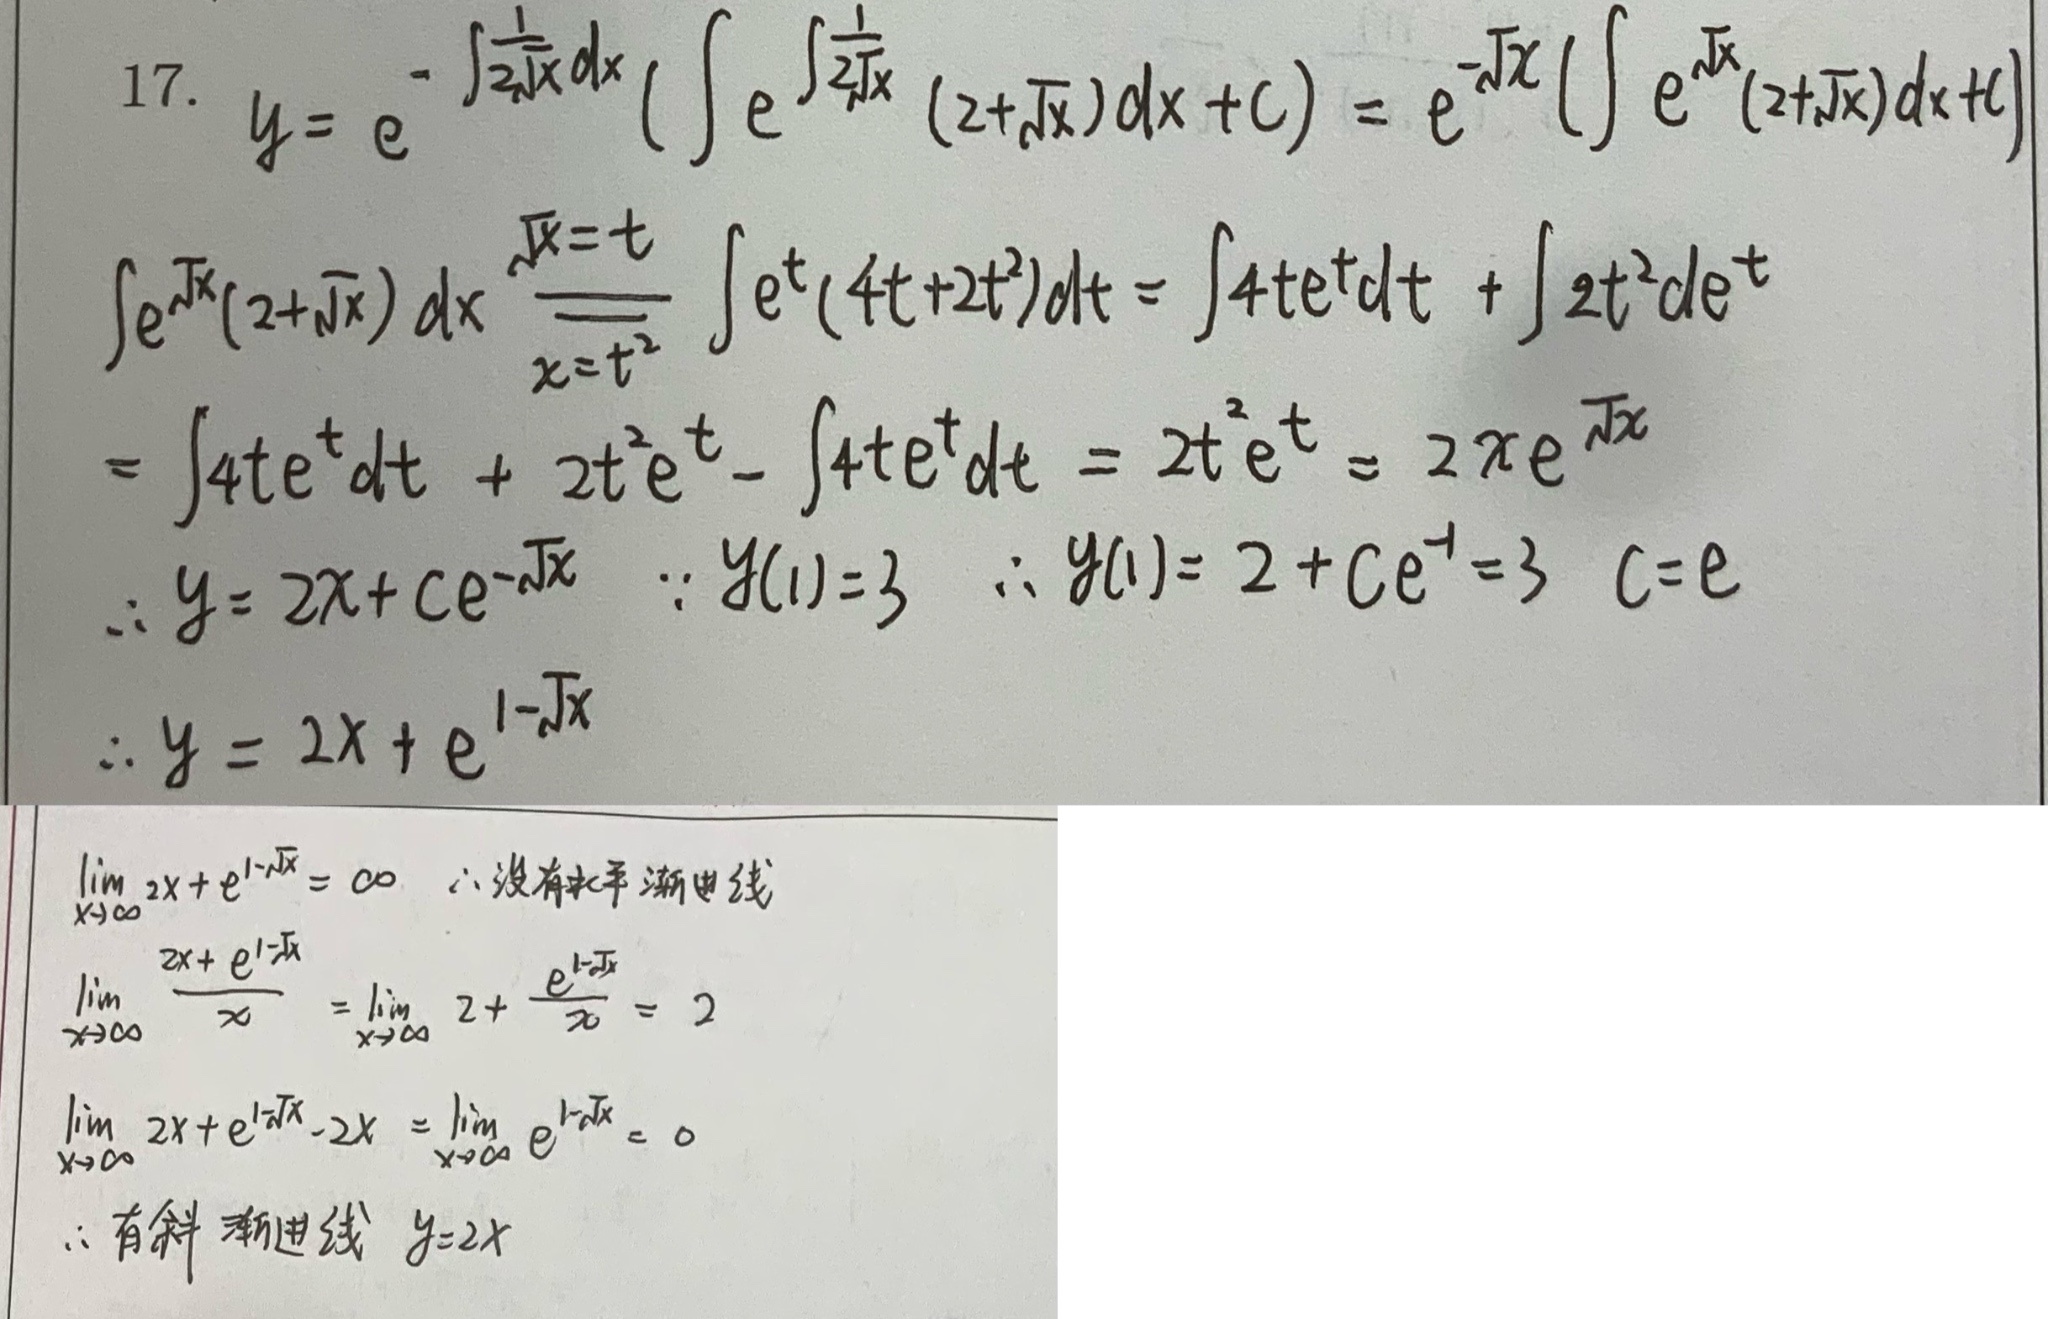 17. y = e^{-∫\frac{1}{2√x}dx} (∫ e^{∫\frac{1}{2√x}} (2+√x) dx + C) = e^{-√x} (∫ e^{√x} (2+√x) dx + C)
∫e^{√x}(2+√x) dx \xlongequal[x=t²]{√x=t} ∫e^t(4t+2t²)dt = ∫4te^t dt + ∫2t²de^t
= ∫4te^t dt + 2t²e^t - ∫4te^t dt = 2t²e^t = 2xe^{√x}
∴ y = 2x + Ce^{-√x} ∵ y(1)=3 ∴ y(1) = 2 + Ce^{-1} = 3 C=e
∴ y = 2x + e^{1-√x}
lim_{x→∞} 2x + e^{1-√x} = ∞ ∴没有水平渐进线
lim_{x→∞} \frac{2x + e^{1-√x}}{x} = lim_{x→∞} 2 + \frac{e^{1-√x}}{x} = 2
lim_{x→∞} 2x + e^{1-√x} - 2x = lim_{x→∞} e^{1-√x} = 0
∴有斜渐进线 y=2x